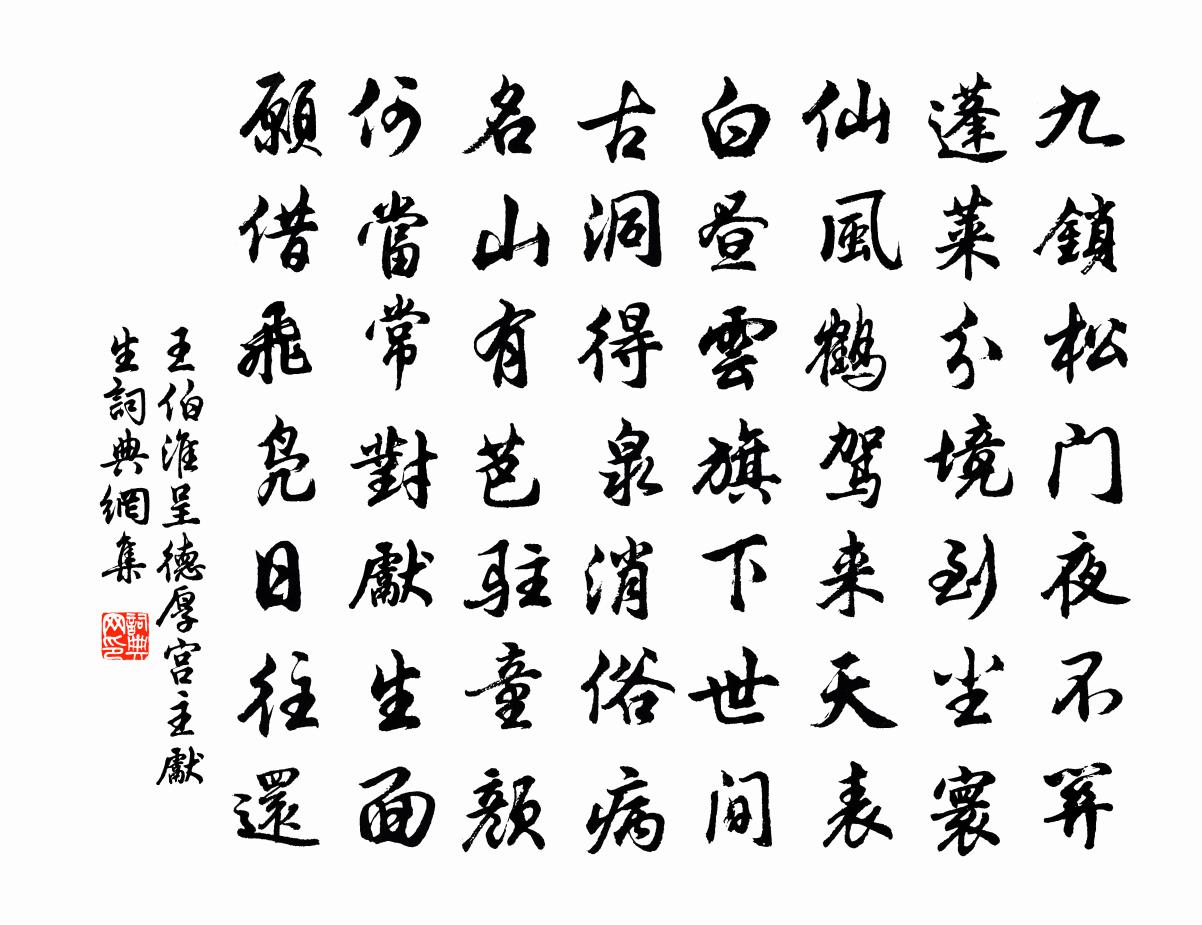 九鎖松门夜不關
蓬萊分境到尘寰
仙風鶴駕来天表
白昼雲旗下世间
古洞得泉消俗病
名山有芭驻童顏
何當常對獻生面
願借飛凫日往還
王伯淮呈德厚宫主獻
生詞典網集
詞典网印